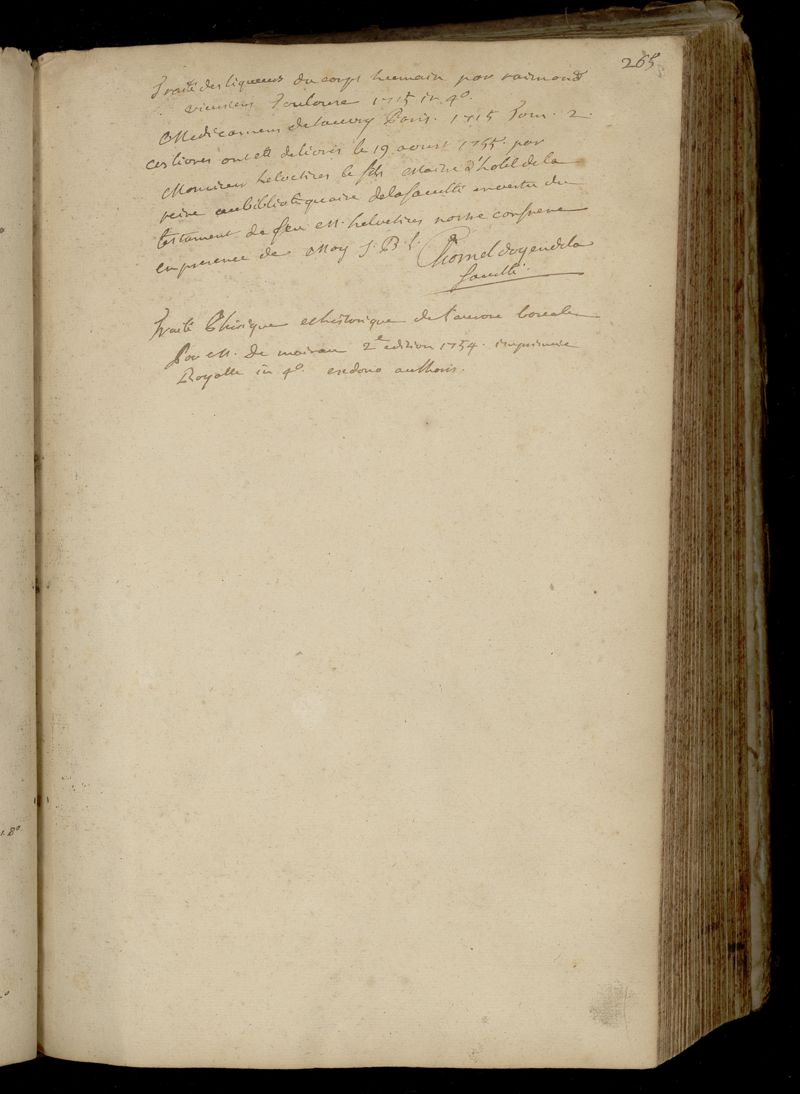 265
Traité des liqueurs du corps humain par raimond
vieussens Toulouse 1715 in 4º.
Medicamens de Lemery Paris. 1715 Tom. 2.
ces livres ont etté delivrés le 19 aoust 1755. par
Monsieur helvetius le fils Maitre d'hotel de la
reine au bibliotequaire de la faculté en vertu du
testament de feu M. helvetius nostre confrere
en presence de Moy J. B. L. Chomel doyen de la
faculté.
Traité Phisique et historique de l'aurore boreale
Par M. de mairan 2e edition 1754. imprimerie
Royalle in 4º. ex dono authoris.
1. 8º